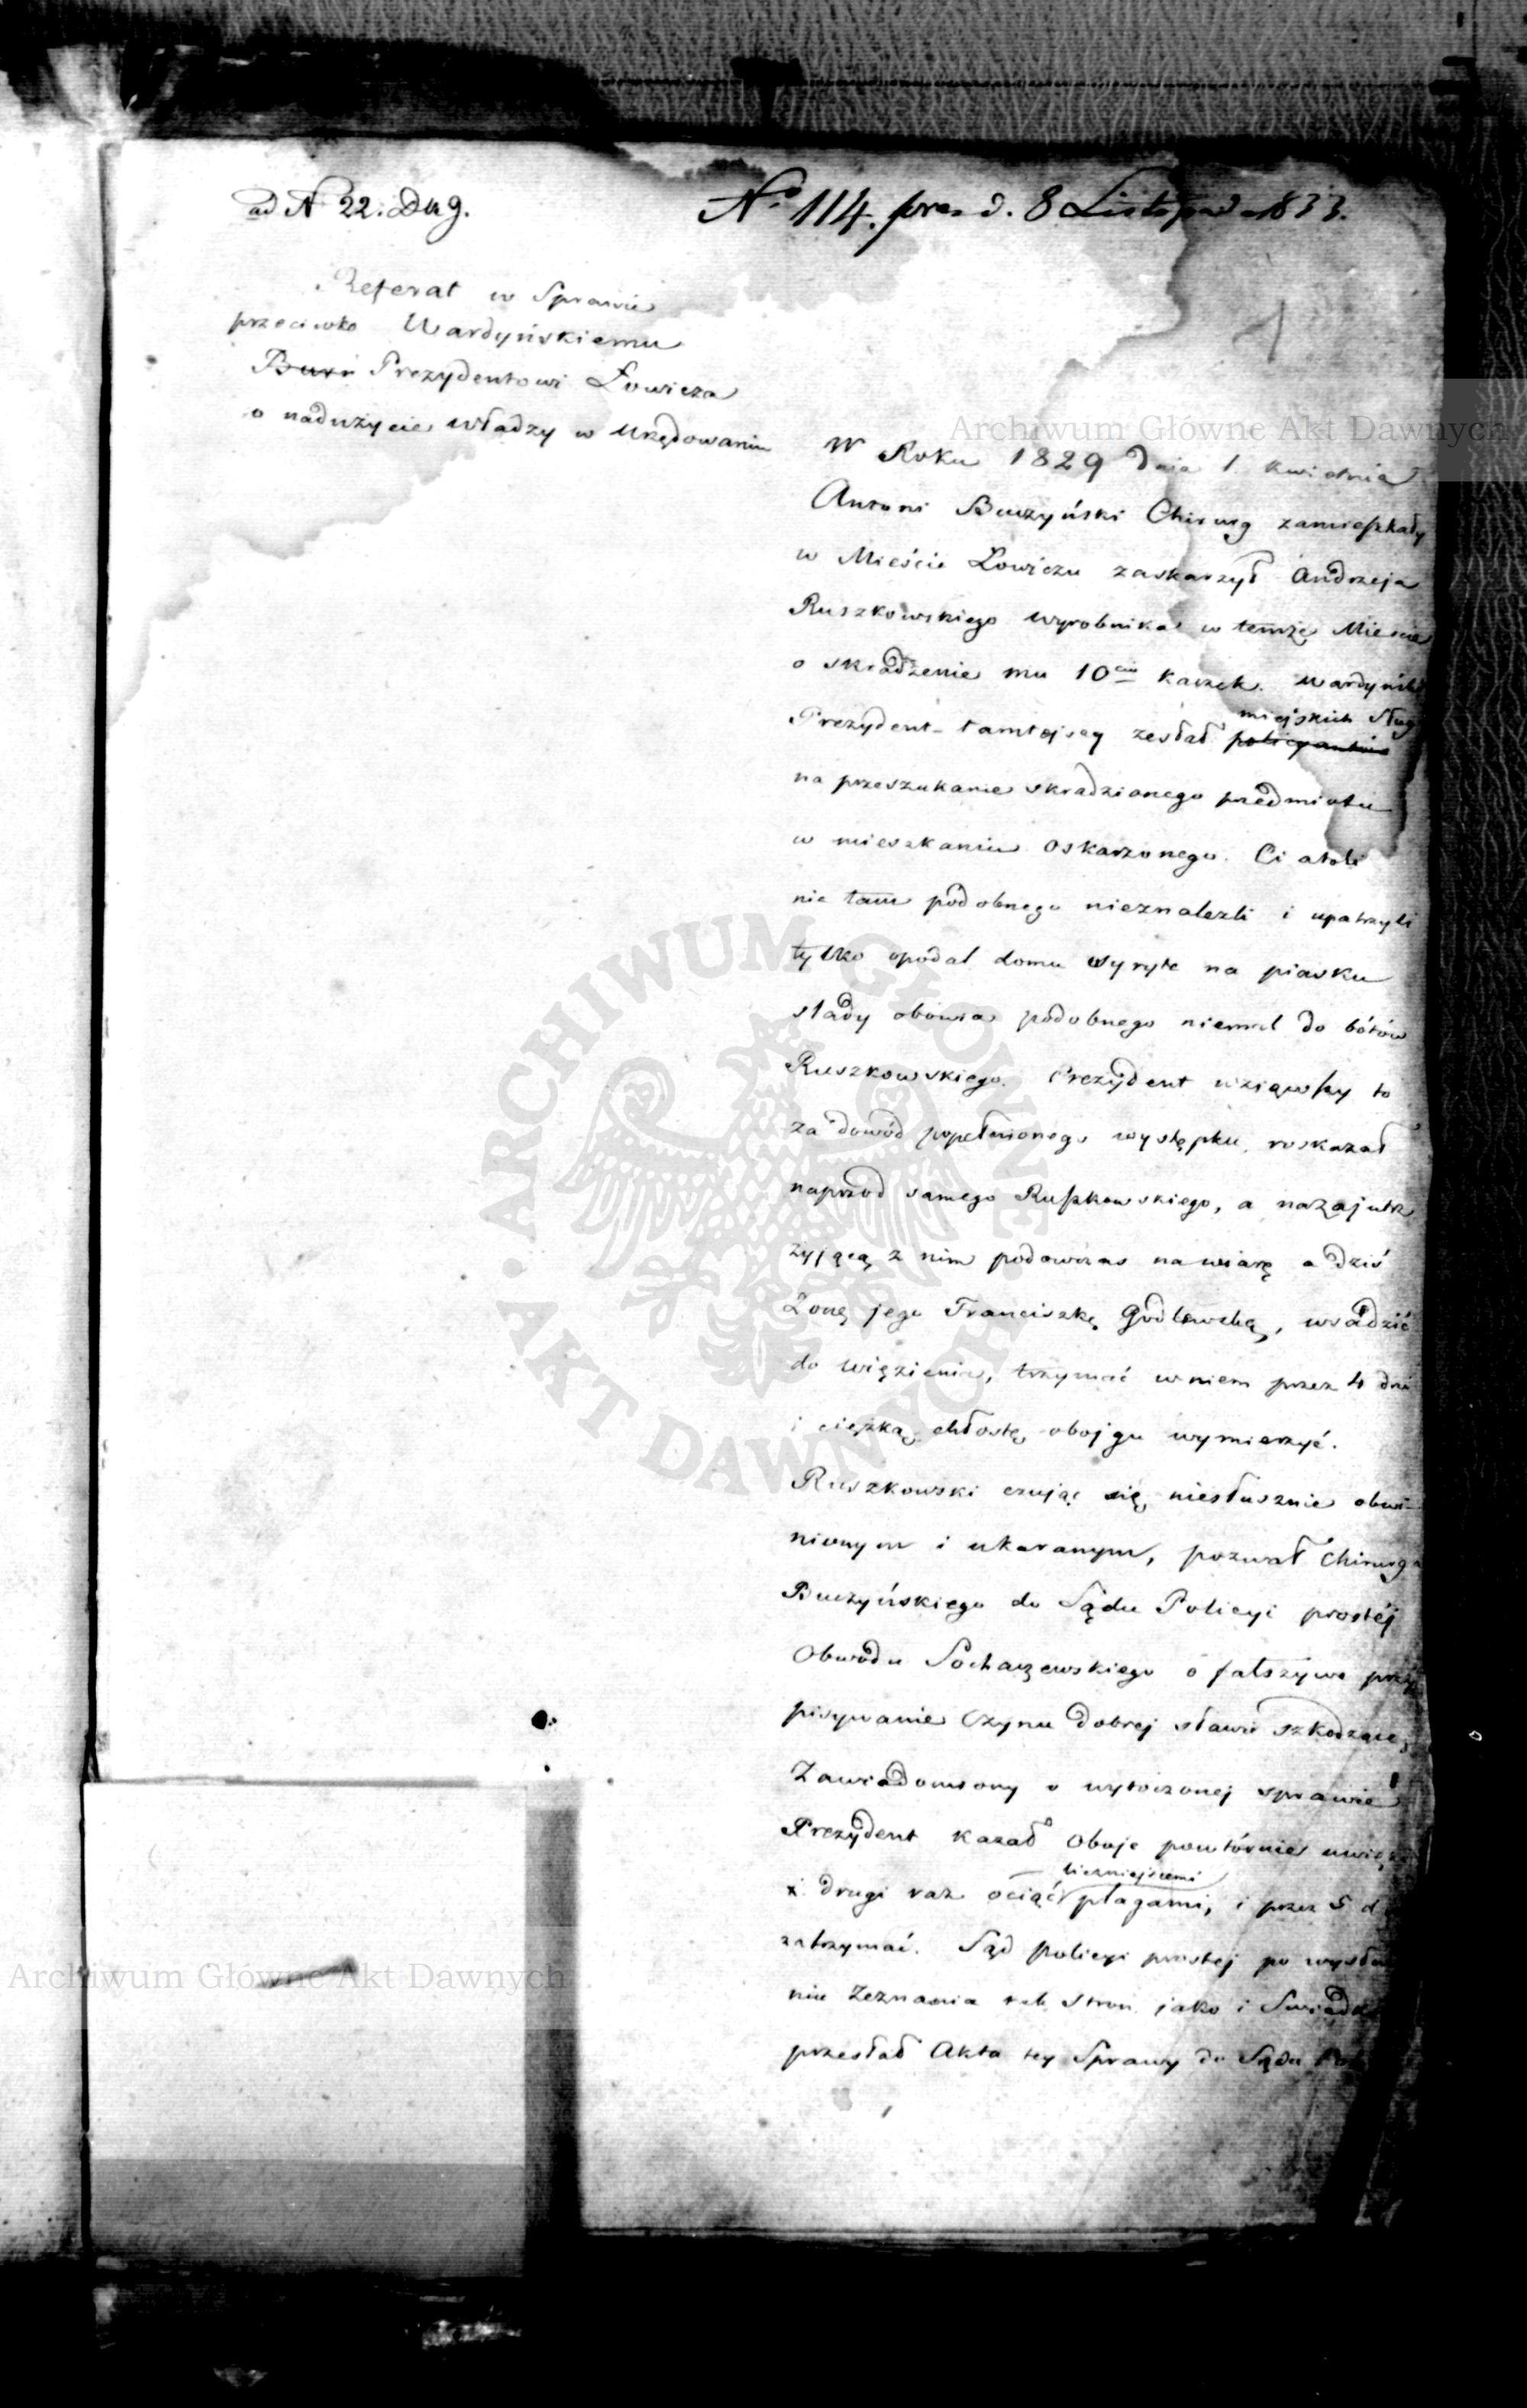 ad N 22. Dug.
No 114. prez d. 8 Listopad 1833.
1
Referat w Sprawie
przeciwko Wardyńskiemu
Burm Prezydentowi Łowicza
o nadużycie władzy w Urzędowaniu
Archiwum Główne Akt Dawnych
W Roku 1829 Dnia 1 kwietnia
Antoni Buczyński Chirurg zamieszkały
w Mieście Łowiczu zaskarzył Andrzeja
Ruszkowskiego wyrobnika w temże Mieście
o skradzenie mu 10ciu kaczek. Wardyński
miejskich Sług
Prezydent tamtejszy zesłał policyantów
na przeszukanie skradzionego przedmiotu
w mieszkaniu oskarzonego. Ci atoli
nic tam podobnego nieznalezli i upatrzyli
tylko opodal domu wyryte na piasku
slady obówia podobnego niemal do bótów
Ruszkowskiego. Prezydent wziąwszy to
za dowód popełnionego występku, roskazał
naprzód samego Ruszkowskiego, a nazajutrz
żyjącą z nim podówczas na wiarę a dziś
Żonę jego Franciszkę Godlewską, wsadzić
do więzienia, trzymać w niem przez 4 dni
i cięzką chłostę obojgu wymierzyć.
Ruszkowski czując się niesłusznie obwi-
nionym i ukaranym, pozwał Chirurga
Buczyńskiego do Sądu Policyi prostéj
Obwodu Sochaczewskiego o fałszywe przy
pisywanie Czynu dobrej sławie szkodzące
Zawiadomiony o wytoczonej sprawie
Prezydent kazał Oboje powtórnie
liczniejszemi
i drugi raz ociąć plagami, i przez 5 d
zatrzymać. Sąd policyi prostej po
niu Zeznania tak Stron jako i
przesłał Akta tey Sprawy do Sądu
Archiwum Główne Akt Dawnych
ARCHIWUM GŁÓWNE AKT DAWNYCH